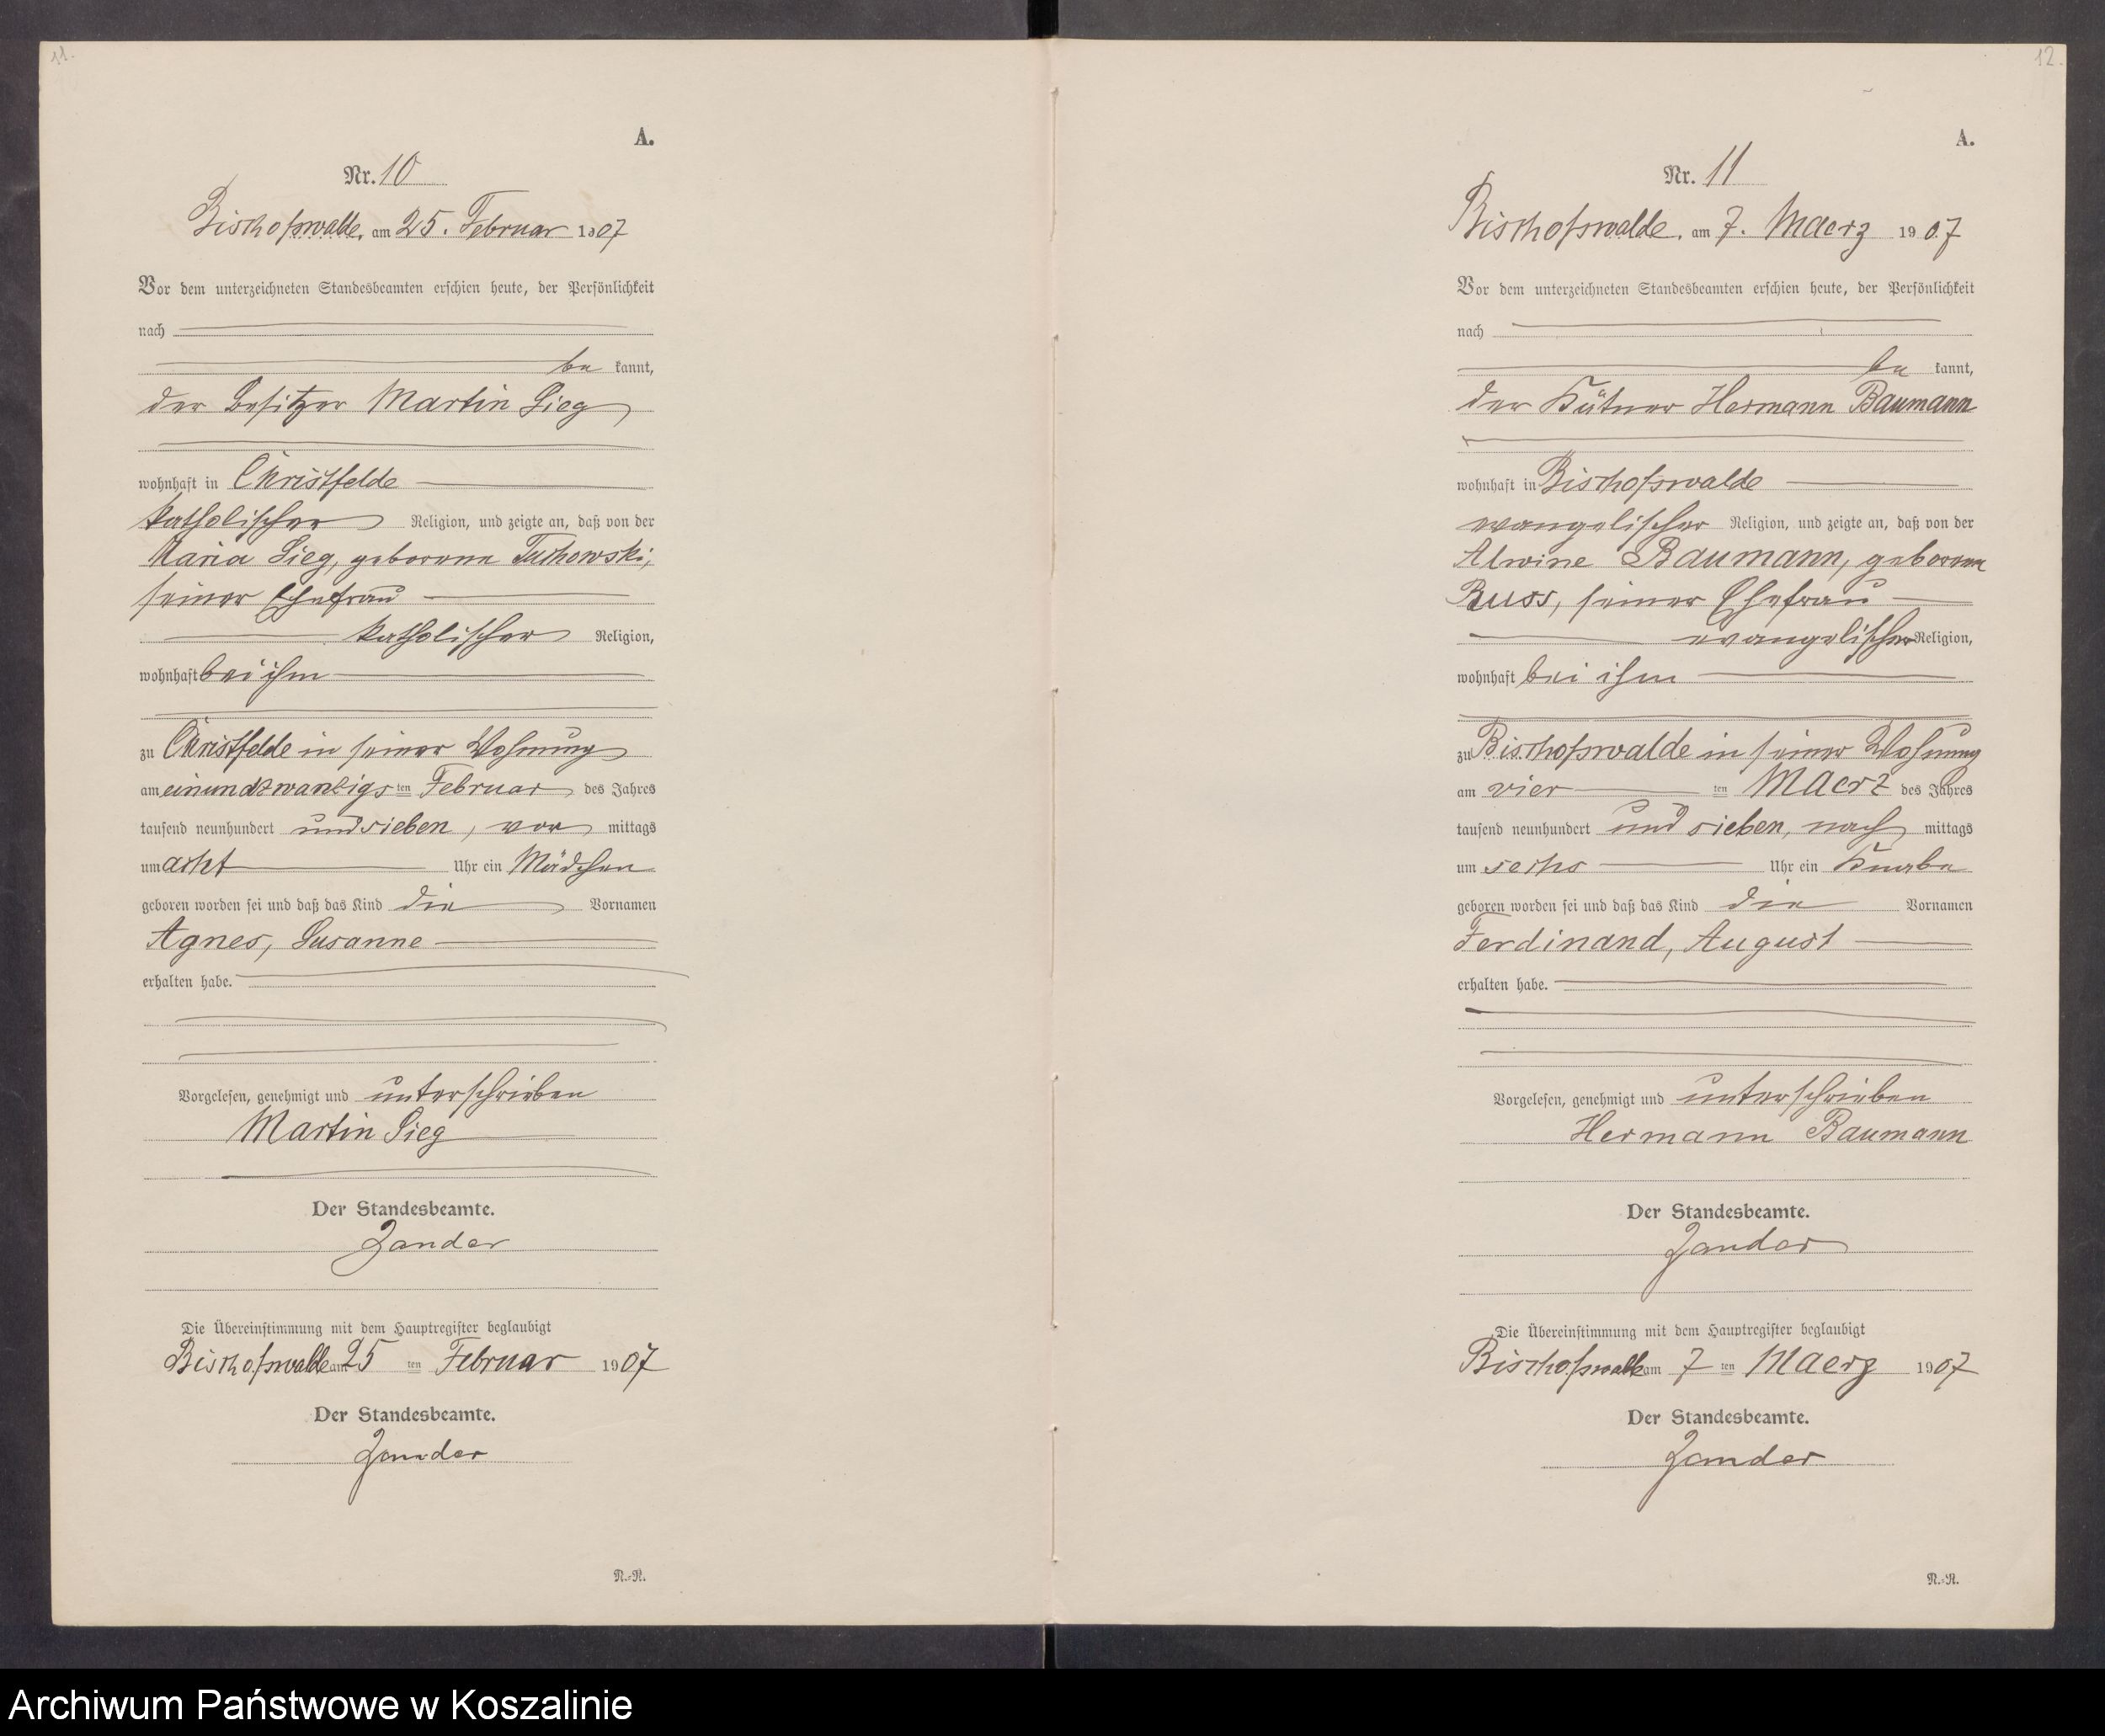 11.
A.
Nr. 10
Bischofswalde, am 25. Februar 1907
Vor dem unterzeichneten Standesbeamten erschien heute, der Persönlichkeit
nach
be kannt,
der Besitzer Martin Sieg
wohnhaft in Christfelde
katholischer Religion, und zeigte an, daß von der
Maria Sieg, geborene Tuchowski,
seiner Ehefrau
katholischer Religion,
wohnhaft bei ihm
zu Christfelde in seiner Wohnung
am einundzwanzigs ten Februar des Jahres
tausend neunhundert und sieben, vor mittags
um acht Uhr ein Mädchen
geboren worden sei und daß das Kind die Vornamen
Agnes, Susanne
erhalten habe.
Vorgelesen, genehmigt und unterschrieben
Martin Sieg
Der Standesbeamte.
Zander
Die Übereinstimmung mit dem Hauptregister beglaubigt
Bischofswalde am 25 ten Februar 1907
Der Standesbeamte.
Zander
N.-N.
12.
A.
Nr. 11
Bischofswalde, am 7. Maerz 1907
Vor dem unterzeichneten Standesbeamten erschien heute, der Persönlichkeit
nach
be kannt,
der Kätner Hermann Baumann
wohnhaft in Bischofswalde
evangelischer Religion, und zeigte an, daß von der
Alwine Baumann, geborene
Buss, seiner Ehefrau
evangelischer Religion,
wohnhaft bei ihm
zu Bischofswalde in seiner Wohnung
am vier ten Maerz des Jahres
tausend neunhundert und sieben, nach mittags
um sechs Uhr ein Knabe
geboren worden sei und daß das Kind die Vornamen
Ferdinand, August
erhalten habe.
Vorgelesen, genehmigt und unterschrieben
Hermann Baumann
Der Standesbeamte.
Zander
Die Übereinstimmung mit dem Hauptregister beglaubigt
Bischofswalde am 7 ten Maerz 1907
Der Standesbeamte.
Zander
N.-N.
Archiwum Państwowe w Koszalinie